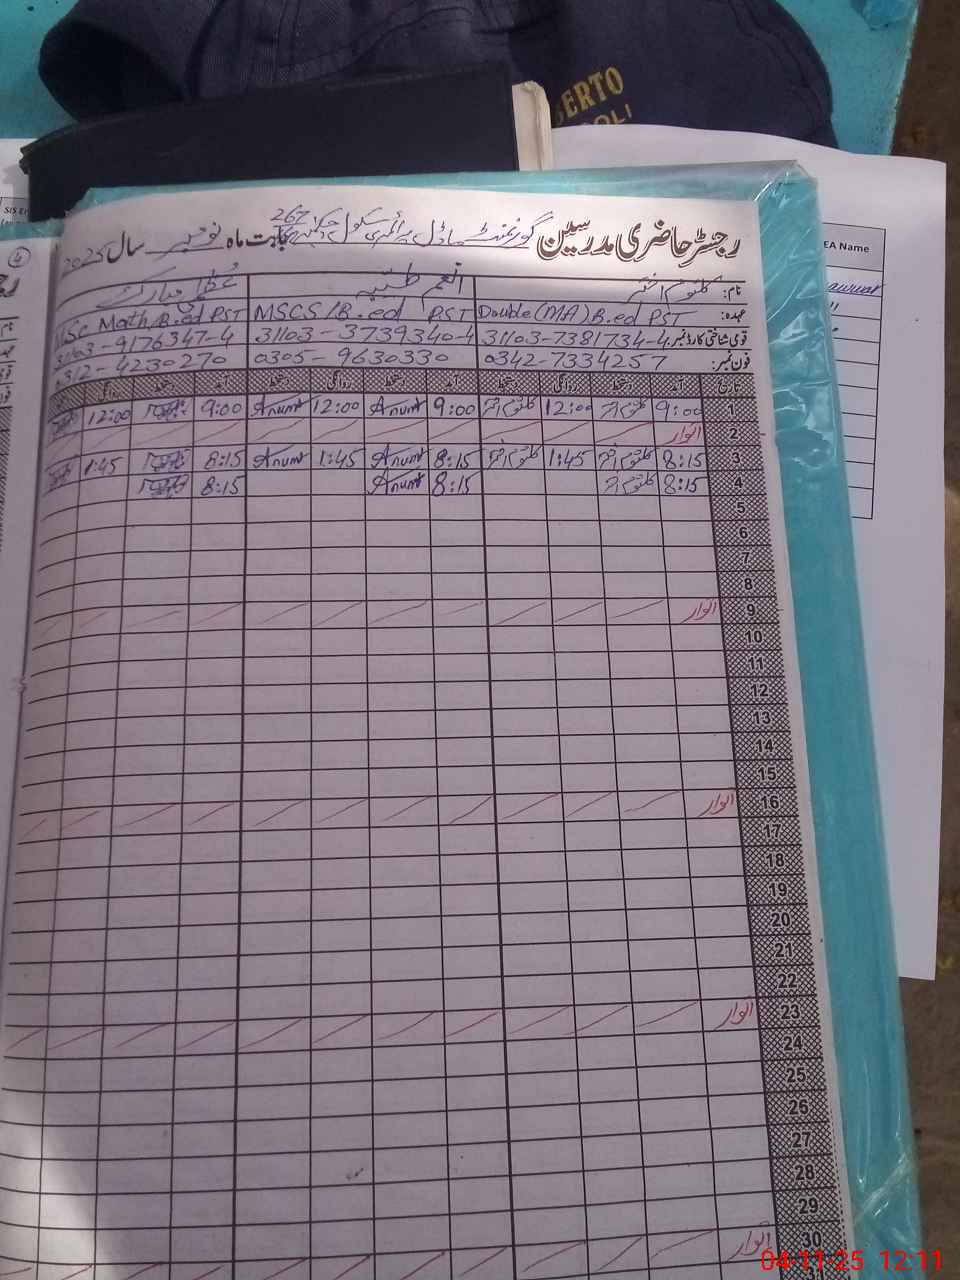 BERTO
EA Name
رجسٹر حاضری مدرسین گورنمنٹ ماڈل پرائمری سکول 267 بابت ماہ نومبر سال 2025
نام: کلثوم اختر انعم طیبہ عظمٰی مبارک
عہدہ: Double (MA) B.ed PST MSCS/B.ed PST MSc Math/B.ed PST
قومی شناختی کارڈ نمبر: 31103-7381734-4 31103-3739340-4 31103-9176347-4
فون نمبر: 0342-7334257 0305-9630330 0312-4230270
تاریخ آمد دستخط روانگی دستخط آمد دستخط روانگی دستخط آمد دستخط روانگی
1 9:00 کلثوم اختر 12:00 کلثوم اختر 9:00 Anum 12:00 Anum 9:00 12:00
2 اتوار
3 8:15 کلثوم اختر 1:45 کلثوم اختر 8:15 Anum 1:45 Anum 8:15 1:45
4 8:15 کلثوم اختر 8:15 Anum 8:15
5
6
7
8
9 اتوار
10
11
12
13
14
15
16 اتوار
17
18
19
20
21
22
23 اتوار
24
25
26
27
28
29
30 اتوار
31
04-11-25 12:11